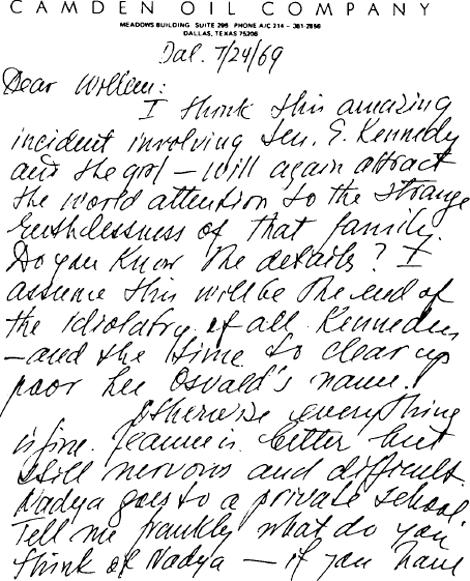 CAMDEN OIL COMPANY
MEADOWS BUILDING SUITE 295 PHONE A/C 214 – 361-2856
DALLAS, TEXAS 75206
Dal. 7/24/69
Dear Willem:
I think this amazing
incident involving Sen. E. Kennedy
and the girl – will again attract
the world attention to the strange
ruthlessness of that family.
Do you know the details? I
assume this will be the end of
the idiolatry of all Kennedys
– and the time to clear up
poor Lee Osvald's name!
Otherwise everything
is fine. Jeanne is better but
still nervous and difficult.
Nadya goes to a private school.
Tell me frankly what do you
think of Nadya – if you have